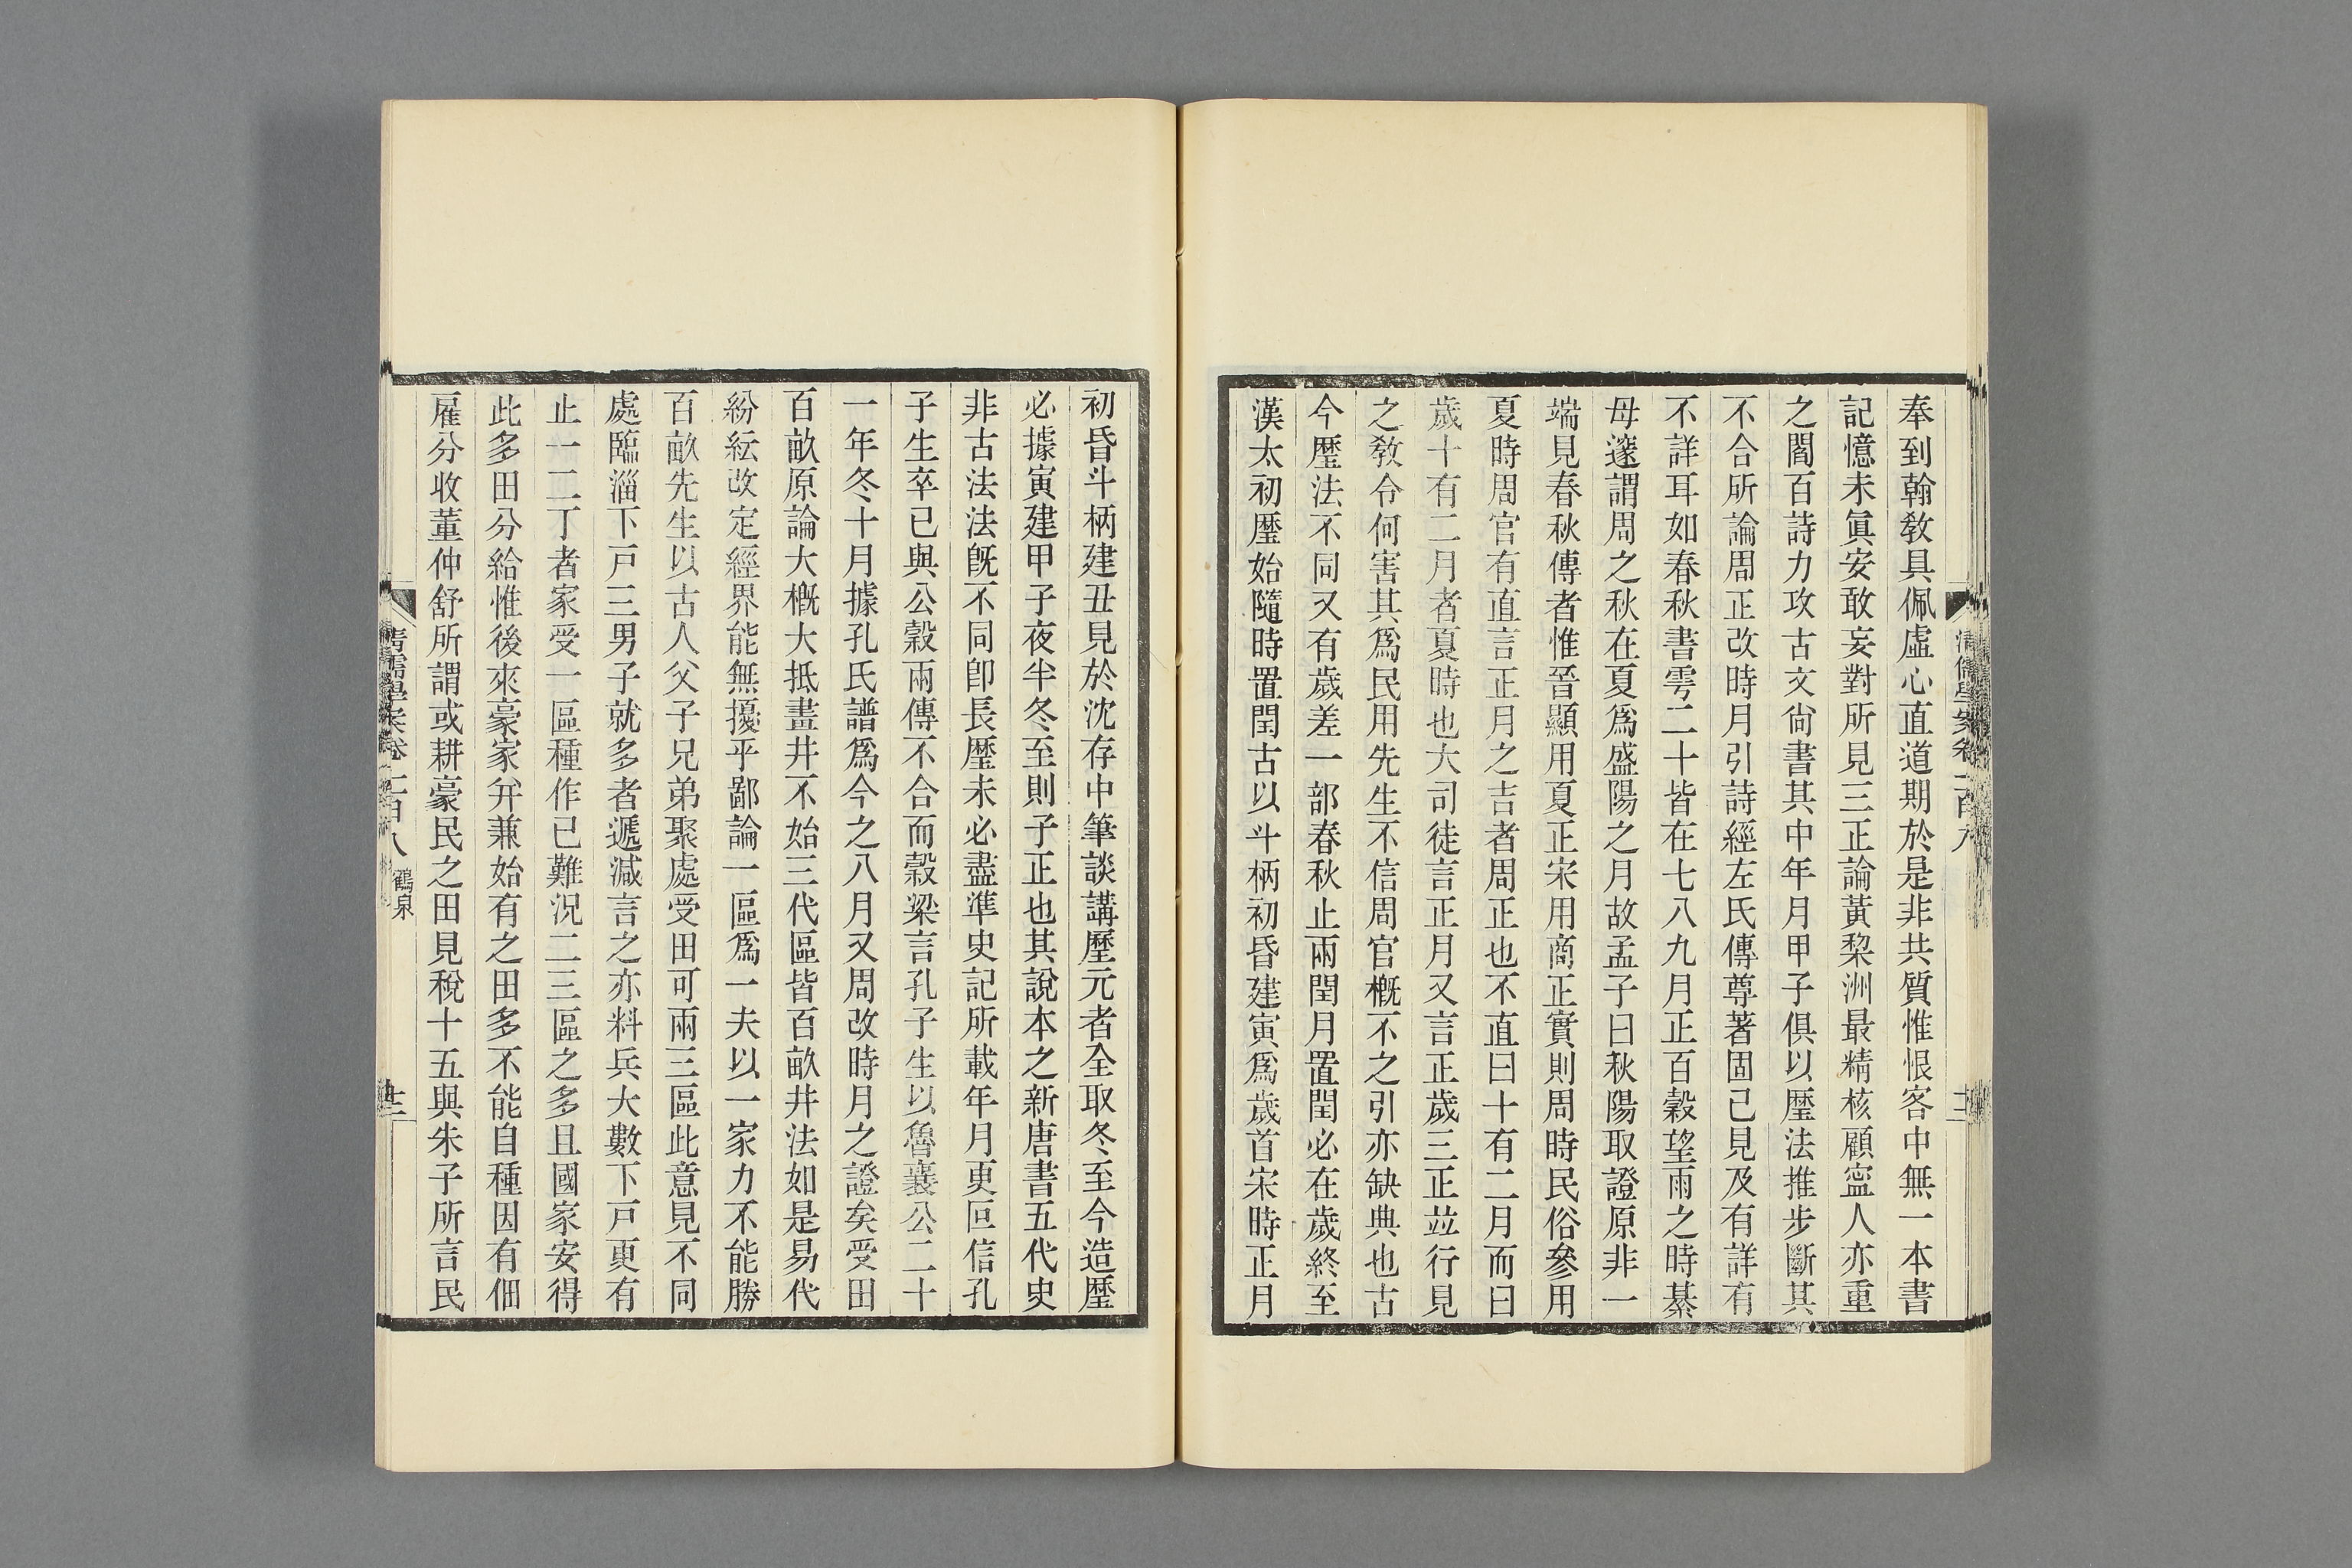 奉到翰敎具佩虛心直道期於是非共質惟恨客中無一本書
記憶未眞安敢妄對所見三正論黃棃洲最精核顧寧人亦重
之閻百詩力攻古文尙書其中年月甲子俱以歷法推步斷其
不合所論周正改時月引詩經左氏傳尊著固已見及有詳有
不詳耳如春秋書雩二十皆在七八九月正百穀望雨之時綦
母邃謂周之秋在夏爲盛陽之月故孟子曰秋陽取證原非一
端見春秋傳者惟晉顯用夏正宋用商正實則周時民俗參用
夏時周官有直言正月之吉者周正也不直曰十有二月而曰
歲十有二月者夏時也大司徒言正月又言正歲三正竝行見
之敎令何害其爲民用先生不信周官槪不之引亦缺典也古
今歷法不同又有歲差一部春秋止兩閏月置閏必在歲終至
漢太初歷始隨時置閏古以斗柄初昏建寅爲歲首宋時正月
初昏斗柄建丑見於沈存中筆談講歷元者全取冬至今造歷
必據寅建甲子夜半冬至則子正也其說本之新唐書五代史
非古法法旣不同卽長歷未必盡準史記所載年月更叵信孔
子生卒已與公穀兩傳不合而穀梁言孔子生以魯襄公二十
一年冬十月據孔氏譜爲今之八月又周改時月之證矣受田
百畝原論大槪大抵畫井不始三代區皆百畝井法如是易代
紛紜改定經界能無擾乎鄙論一區爲一夫以一家力不能勝
百畝先生以古人父子兄弟聚處受田可兩三區此意見不同
處臨淄下戸三男子就多者遞減言之亦料兵大數下戸更有
止一二丁者家受一區種作已難況二三區之多且國家安得
此多田分給惟後來豪家幷兼始有之田多不能自種因有佃
雇分收董仲舒所謂或耕豪民之田見稅十五與朱子所言民
清儒學案卷二百八 鶴泉